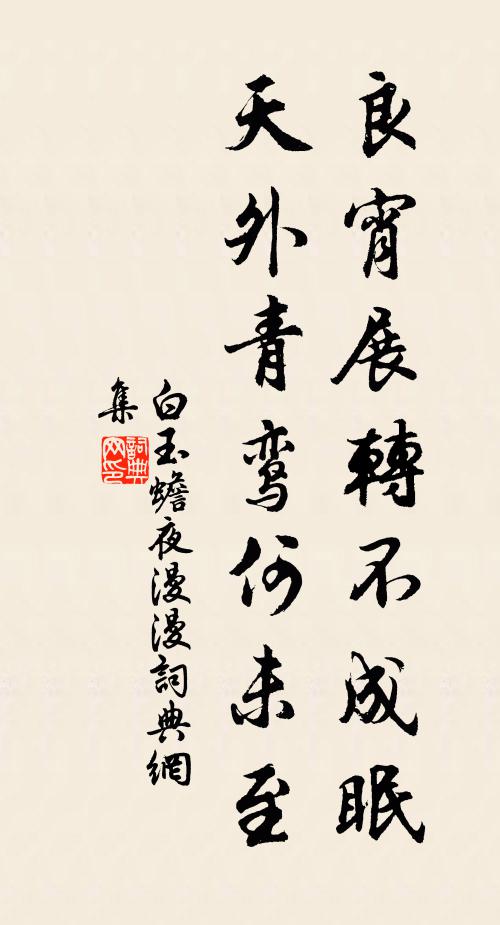 良宵展轉不成眠
天外青鸾何未至
白玉蟾夜漫漫詞典網
集
詞典網印